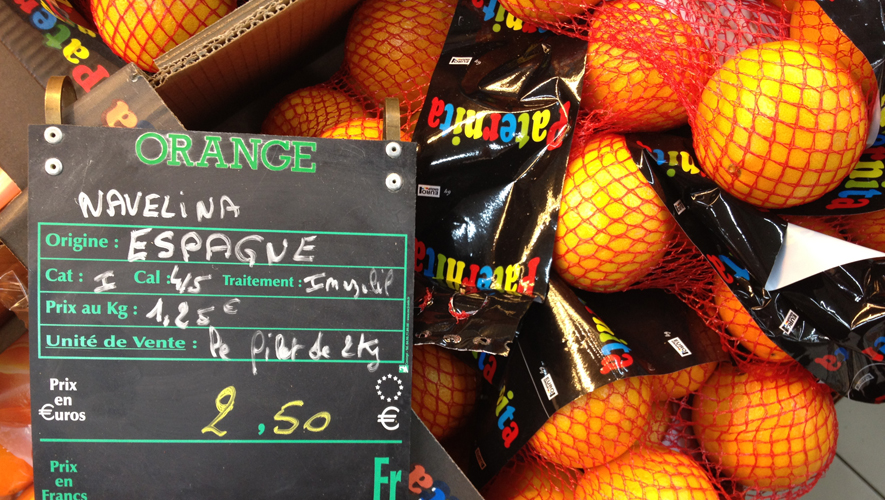 ORANGE
NAVELINA
Origine : ESPAGNE
Cat : I Cal : 4/5 Traitement : Imazalil
Prix au Kg : 1,25 €
Unité de Vente : Le filet de 2kg
Prix
en
€uros
2,50
€
Prix
en
Francs
Fr
Paternita
Paternita
Paternita
Paternita